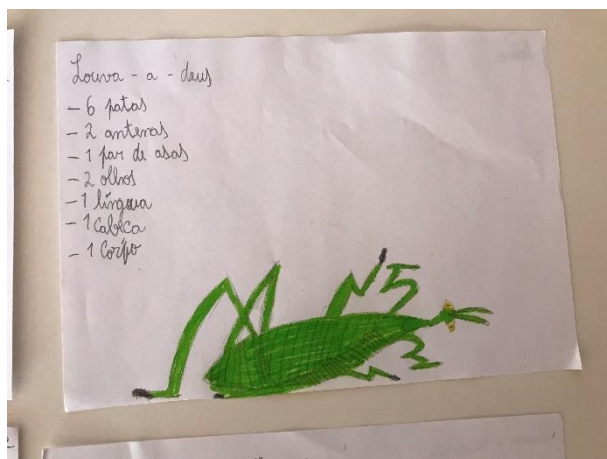 Louva - a - deus
- 6 patas
- 2 antenas
- 1 par de asas
- 2 olhos
- 1 língua
- 1 cabeca
- 1 corpo